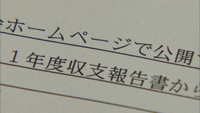 ホームページで公開
1年度収支報告書から